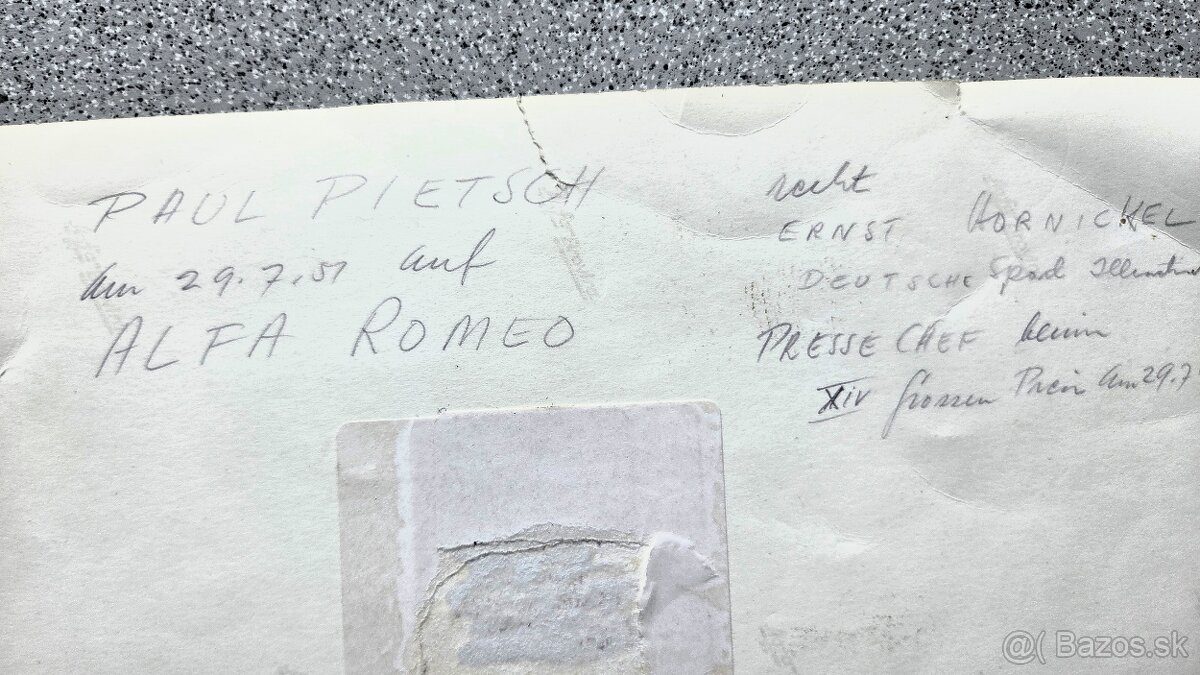 PAUL PIETSCH
am 29.7.51 auf
ALFA ROMEO
recht
ERNST HORNICKEL
DEUTSCHE
PRESSE CHEF beim
XIV Grossen Preis am 29.7
@( Bazos.sk